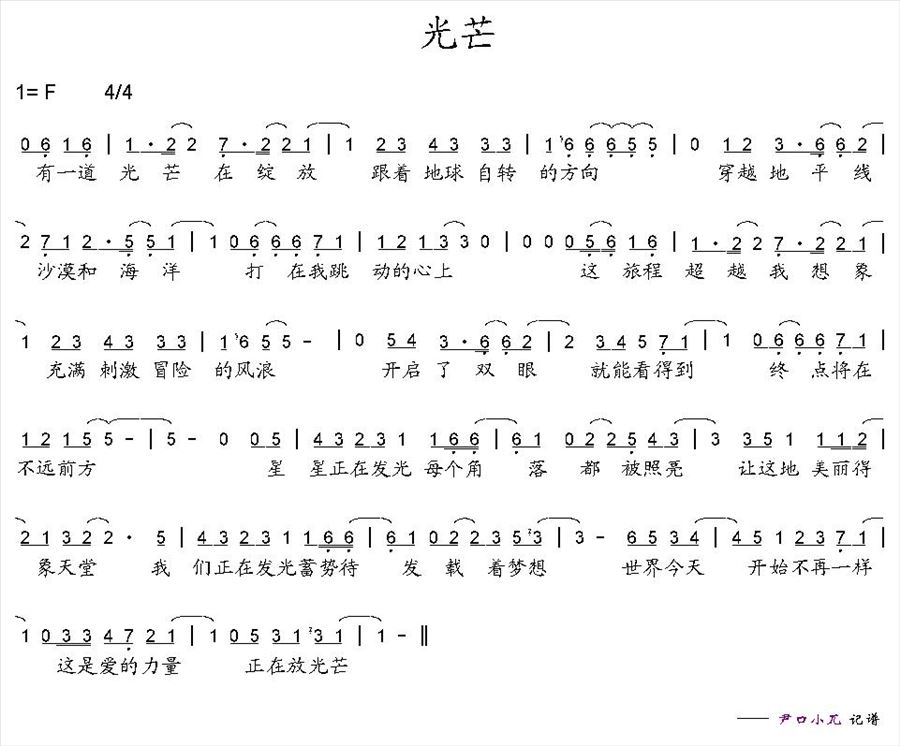 光芒
1= F 4/4
0 6 1 6 | 1 · 2 2 7 · 2 2 1 | 1 2 3 4 3 3 3 | 1 6 6 6 5 5 | 0 1 2 3 · 6 6 2 |
有一道 光 芒 在 绽 放 跟着 地球 自转 的方向 穿越 地 平 线
2 7 1 2 · 5 5 1 | 1 0 6 6 6 7 1 | 1 2 1 3 3 0 | 0 0 0 5 6 1 6 | 1 · 2 2 7 · 2 2 1 |
沙漠和 海 洋 打 在我跳 动的心上 这 旅程 超 越 我 想 象
1 2 3 4 3 3 3 | 1 6 5 5 - | 0 5 4 3 · 6 6 2 | 2 3 4 5 7 1 | 1 0 6 6 6 7 1 |
充满 刺激 冒险 的风浪 开启 了 双 眼 就能看得到 终 点将在
1 2 1 5 5 - | 5 - 0 0 5 | 4 3 2 3 1 1 6 6 | 6 1 0 2 2 5 4 3 | 3 3 5 1 1 1 2 |
不远前方 星 星正在发光 每个角 落 都 被照亮 让这地 美丽得
2 1 3 2 2 · 5 | 4 3 2 3 1 1 6 6 | 6 1 0 2 2 3 5 3 | 3 - 6 5 3 4 | 4 5 1 2 3 7 1 |
象天堂 我 们正在发光蓄势待 发 载 着梦想 世界今天 开始不再一样
1 0 3 3 4 7 2 1 | 1 0 5 3 1 3 1 | 1 - ‖
这是爱的力量 正在放光芒
—— 尹口小瓦 记谱